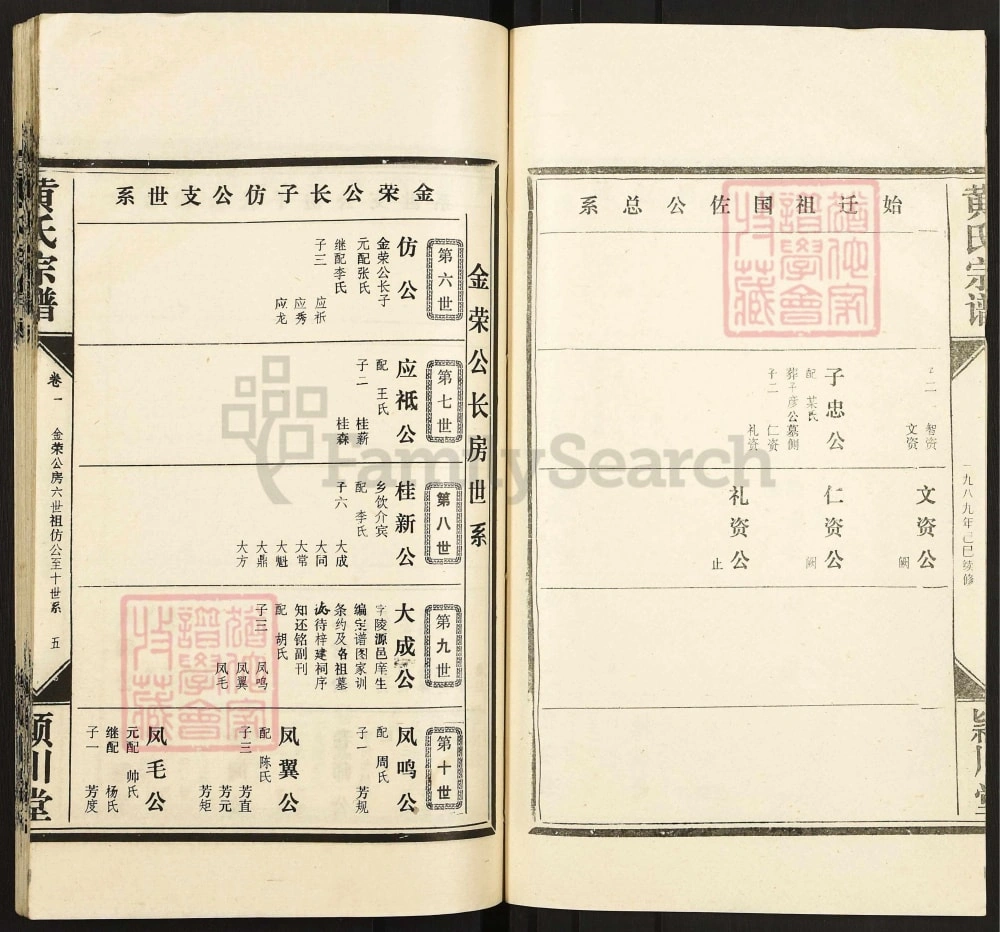 黄氏宗谱
一九八九年己巳续修
颍川堂
始迁祖国佐公总系
子二
智资
文资
子忠公
配 某氏
葬子彦公墓侧
子二
仁资
礼资
文资公
阙
仁资公
阙
礼资公
止
金荣公长子仿公支世系
金荣公长房世系
第六世
仿公
金荣公长子
元配张氏
继配李氏
子三
应祇
应秀
应龙
第七世
应祗公
配 王氏
子二
桂新
桂森
第八世
桂新公
乡饮介宾
配 李氏
子六
大成
大同
大常
大魁
大鼎
大方
第九世
大成公
字陵源邑庠生
编宝谱图家训
条约及各祖墓
诙待梓建祠序
知还铭副刊
配 胡氏
子三
凤鸣
凤翼
凤毛
第十世
凤鸣公
配 周氏
子一
芳规
凤翼公
配 陈氏
子三
芳直
芳元
芳矩
凤毛公
元配 帅氏
继配 杨氏
子一
芳度
黄氏宗谱
卷一
金荣公房六世祖仿公至十世系
五
颍川堂
犹他家谱学会收藏
犹他家谱学会收藏
FamilySearch